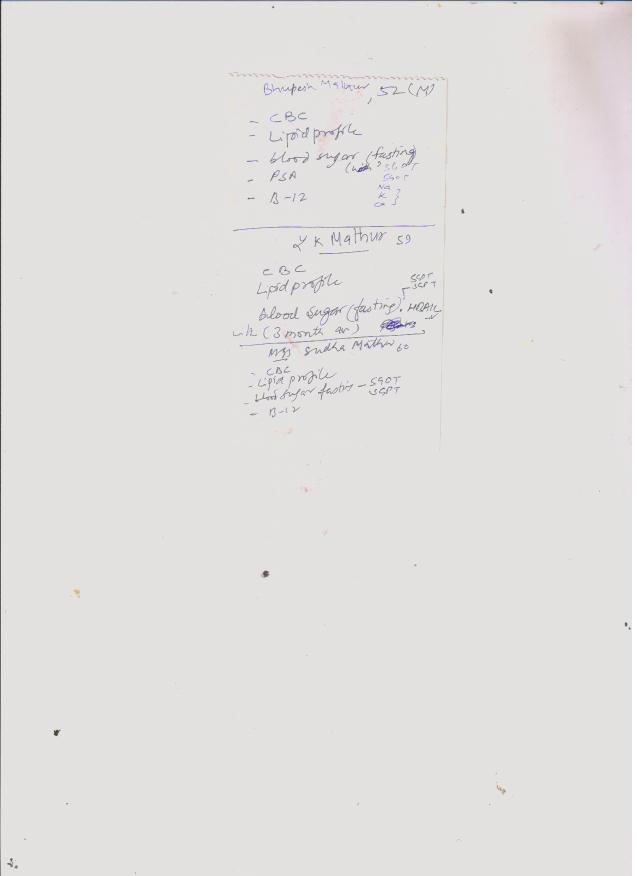 Bhupesh Mathur, 52 (M)
- CBC
- Lipid profile
- blood sugar (fasting)
- PSA
SGOT
Na
K }
- B-12
Ca }
Y K Mathur 59
CBC
Lipid profile
SGOT
SGPT
blood sugar (fasting).
(3 month av)
Mrs Sudha Mathur 60
- CBC
- Lipid profile
- blood sugar fasting - SGOT
SGPT
- B-12